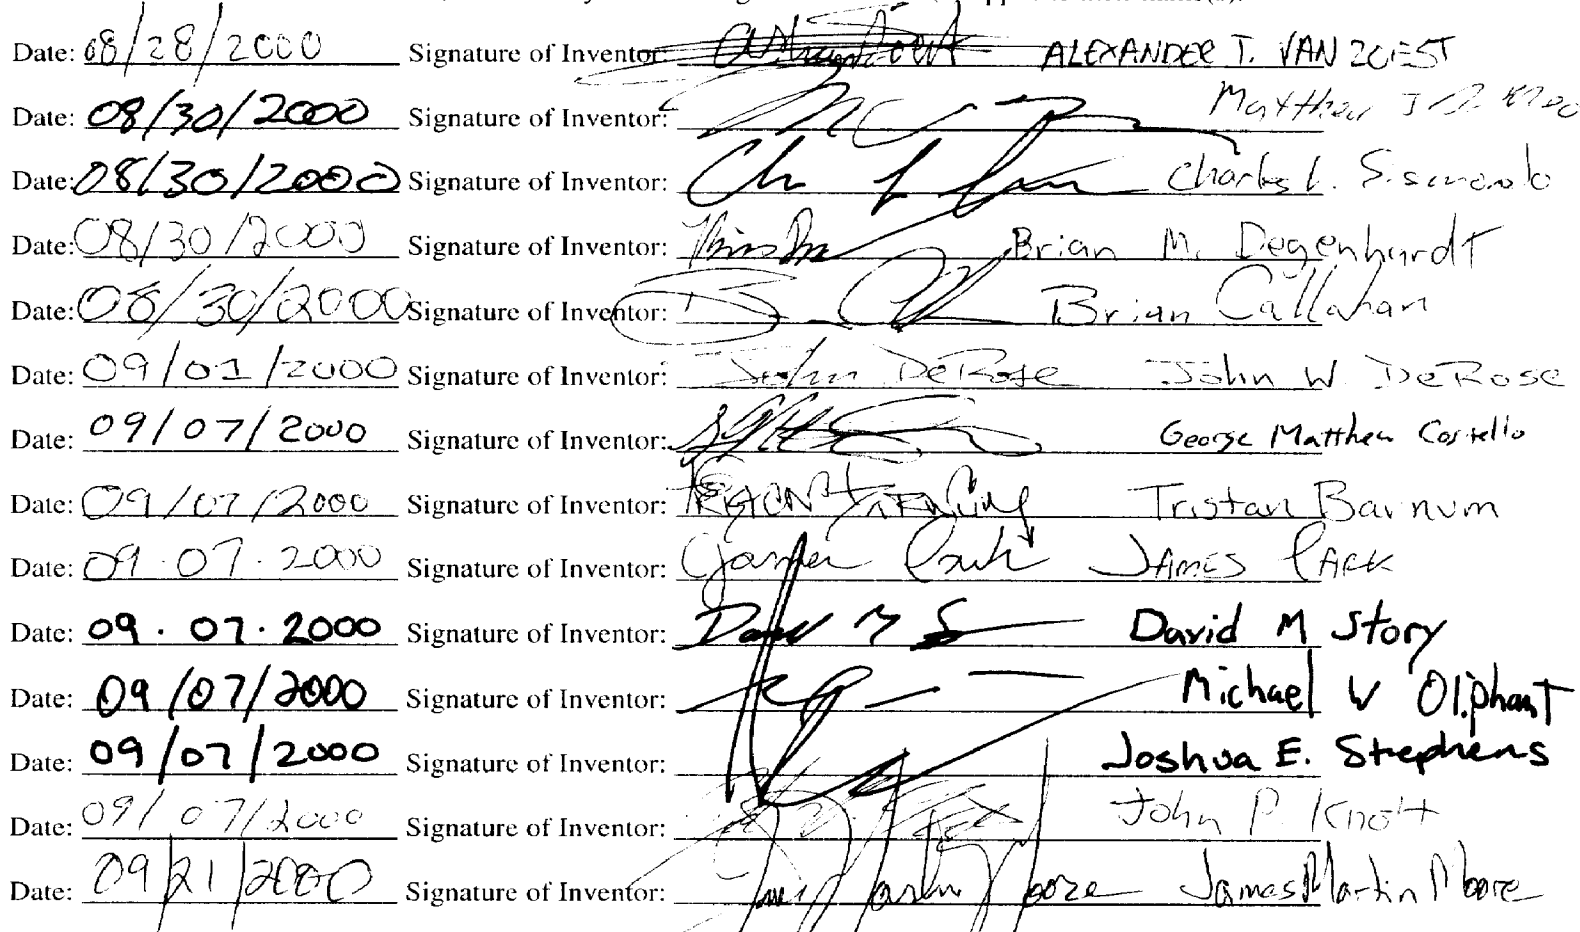 Date: 08/28/2000 Signature of Inventor: ALEXANDER T. VAN ZOEST
Date: 08/30/2000 Signature of Inventor: Matthew J
Date: 08/30/2000 Signature of Inventor: Charles L.
Date: 08/30/2000 Signature of Inventor: Brian M. Degenhardt
Date: 08/30/2000 Signature of Inventor: Brian Callahan
Date: 09/01/2000 Signature of Inventor: John DeRose John W. DeRose
Date: 09/07/2000 Signature of Inventor: George Matthew Costello
Date: 09/07/2000 Signature of Inventor: Tristan Barnum
Date: 09.07.2000 Signature of Inventor: James Park JAMES PARK
Date: 09.07.2000 Signature of Inventor: David M S David M Story
Date: 09/07/2000 Signature of Inventor: Michael W Oliphant
Date: 09/07/2000 Signature of Inventor: Joshua E. Stephens
Date: 09/07/2000 Signature of Inventor: John P. Knott
Date: 09/21/2000 Signature of Inventor: James Martin Moore James Martin Moore